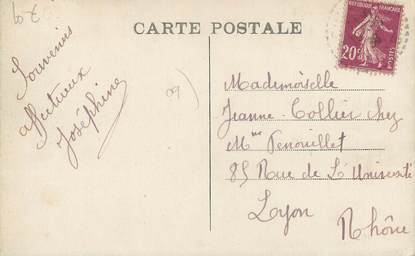 10 €
CARTE POSTALE
RÉPUBLIQUE FRANÇAISE
20c
Souvenirs
affectueux
Joséphine
Mademoiselle
Jeanne Collier chez
Mme Penouillet
85 Rue de L'Université
Lyon
Rhône